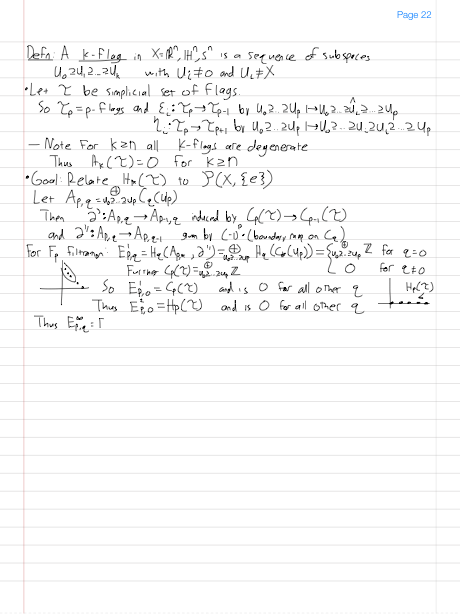 Page 22
Defn: A k-flag in X=ℝⁿ, ℍⁿ, Sⁿ is a sequence of subspaces
U₀⊇U₁⊇...⊇Uₖ with Uᵢ≠0 and Uᵢ≠X
• Let 𝒯 be simplicial set of flags.
So 𝒯ₚ = p-flags and εᵢ: 𝒯ₚ→𝒯ₚ₋₁ by U₀⊇...⊇Uₚ ↦ U₀⊇...⊇Ûᵢ⊇...⊇Uₚ
ηᵢ: 𝒯ₚ→𝒯ₚ₊₁ by U₀⊇...⊇Uₚ ↦ U₀⊇...⊇Uᵢ⊇Uᵢ⊇...⊇Uₚ
— Note For k≥n all k-flags are degenerate
Thus Hₖ(𝒯)=0 for k≥n
• Goal: Relate H_*(𝒯) to 𝒫(X,{e})
Let A_{p,q} = ⊕_{U₀⊇...⊇Uₚ} C_q(Uₚ)
Then ∂': A_{p,q}→A_{p-1,q} induced by Cₚ(𝒯)→Cₚ₋₁(𝒯)
and ∂'': A_{p,q}→A_{p,q-1} given by (-1)ᵖ (boundary map on C_q)
For Fₚ filtration: E¹_{p,q} = H_q(A_{p,*}, ∂'') = ⊕_{U₀⊇...⊇Uₚ} H_q(C_*(Uₚ)) = { ⊕_{U₀⊇...⊇Uₚ} ℤ for q=0
Further Cₚ(𝒯) = ⊕_{U₀⊇...⊇Uₚ} ℤ 0 for q≠0
So E¹_{p,0} = Cₚ(𝒯) and is 0 for all other q Hₚ(𝒯)
Thus E²_{p,0} = Hₚ(𝒯) and is 0 for all other q
Thus E^∞_{p,q} = Γ